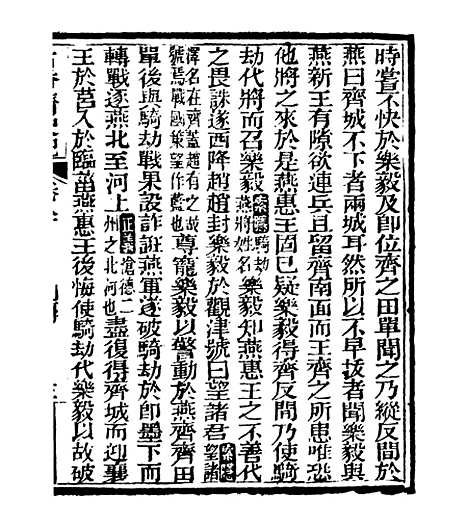 時嘗不快於樂毅及卽位齊之田單聞之乃縱反間於
燕曰齊城不下者兩城耳然所以不早拔者聞樂毅與
燕新王有隙欲連兵且留齊南面而王齊之所患唯恐
他將之來於是燕惠王固已疑樂毅得齊反間乃使騎
劫代將而召樂毅索隱騎劫燕將姓名樂毅知燕惠王之不善代
之畏誅遂西降趙趙封樂毅於觀津號曰望諸君索隱望諸
澤名在齊蓋趙有之故號焉戰國策望作藍也尊寵樂毅以警動於燕齊齊田
單後與騎劫戰果設詐誑燕軍遂破騎劫於卽墨下而
轉戰逐燕北至河上正義滄德二州之北河也盡復得齊城而迎襄
王於莒入於臨菑燕惠王後悔使騎劫代樂毅以故破